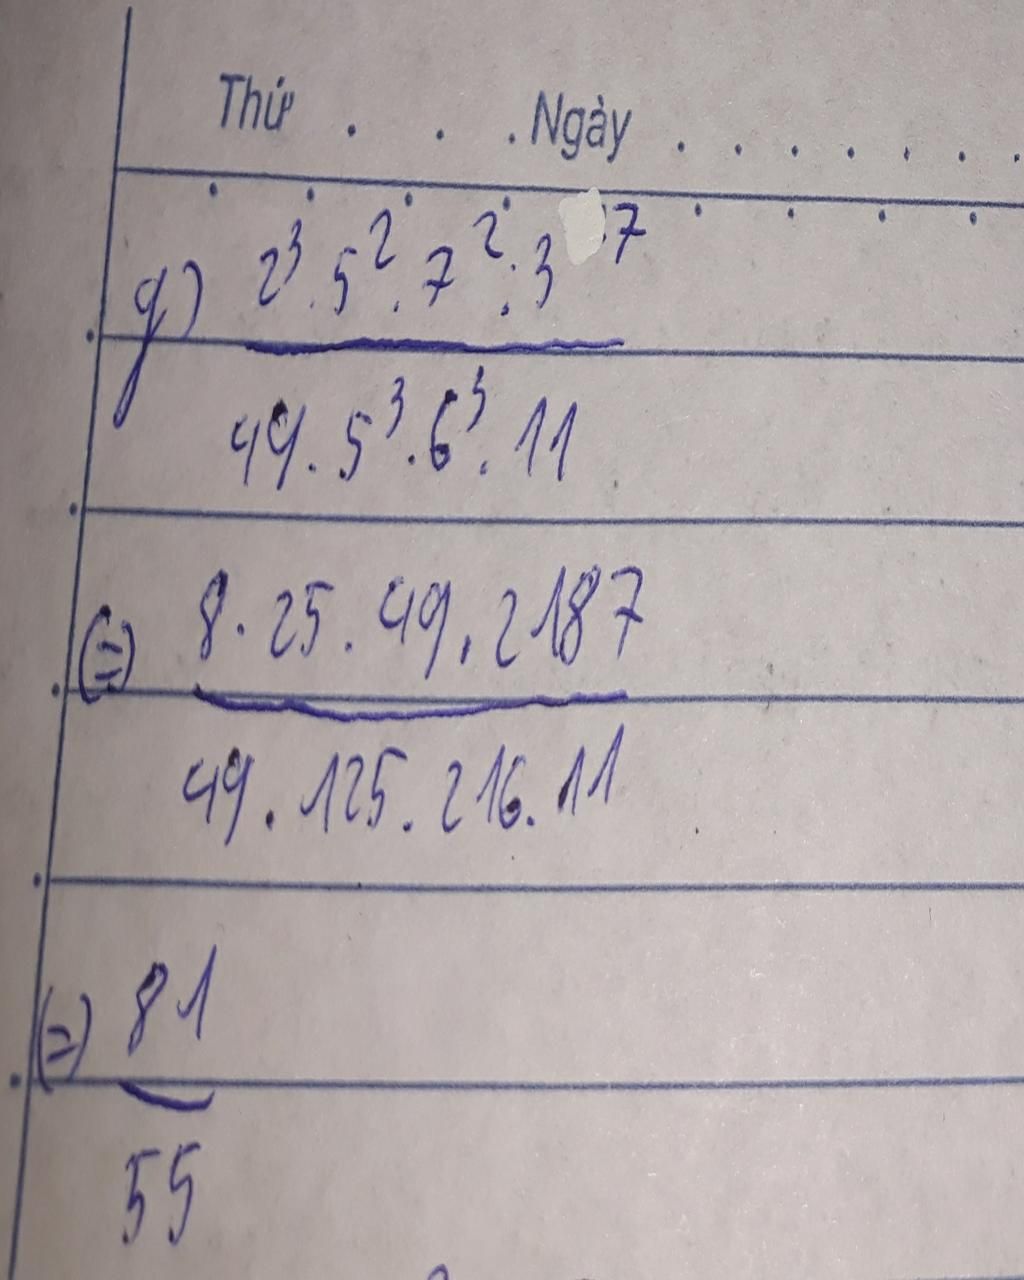 Thứ . . . Ngày . . . . . . .
g) 2³ . 5² . 7² . 3⁷
49 . 5³ . 6³ . 11
(=) 8 . 25 . 49 . 2187
49 . 125 . 216 . 11
(=) 81
55